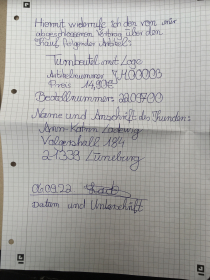 Hiermit widerrufe ich den von mir
abgeschlossenen Vertrag über den
Kauf folgender Artikel:
Turnbeutel mit Logo
Artikelnummer: 4400003
Preis 14,90€
Bestellnummer: 2209700
Name und Anschrift des Kunden:
Ann-Katrin Ladewig
Volgershall 184
21339 Lüneburg
06.09.22
Datum und Unterschrift